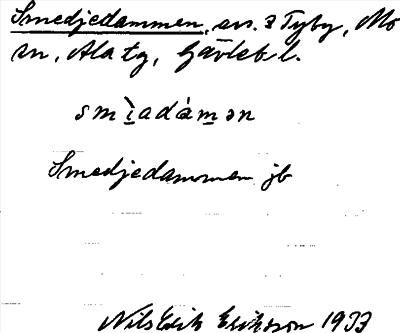 Smedjedammen, avs. å Tyby, Mo
sn, Ala tg, Gävleb l.
smìadàmən
Smedjedammen jb
Nils Erik Eriksson 1933